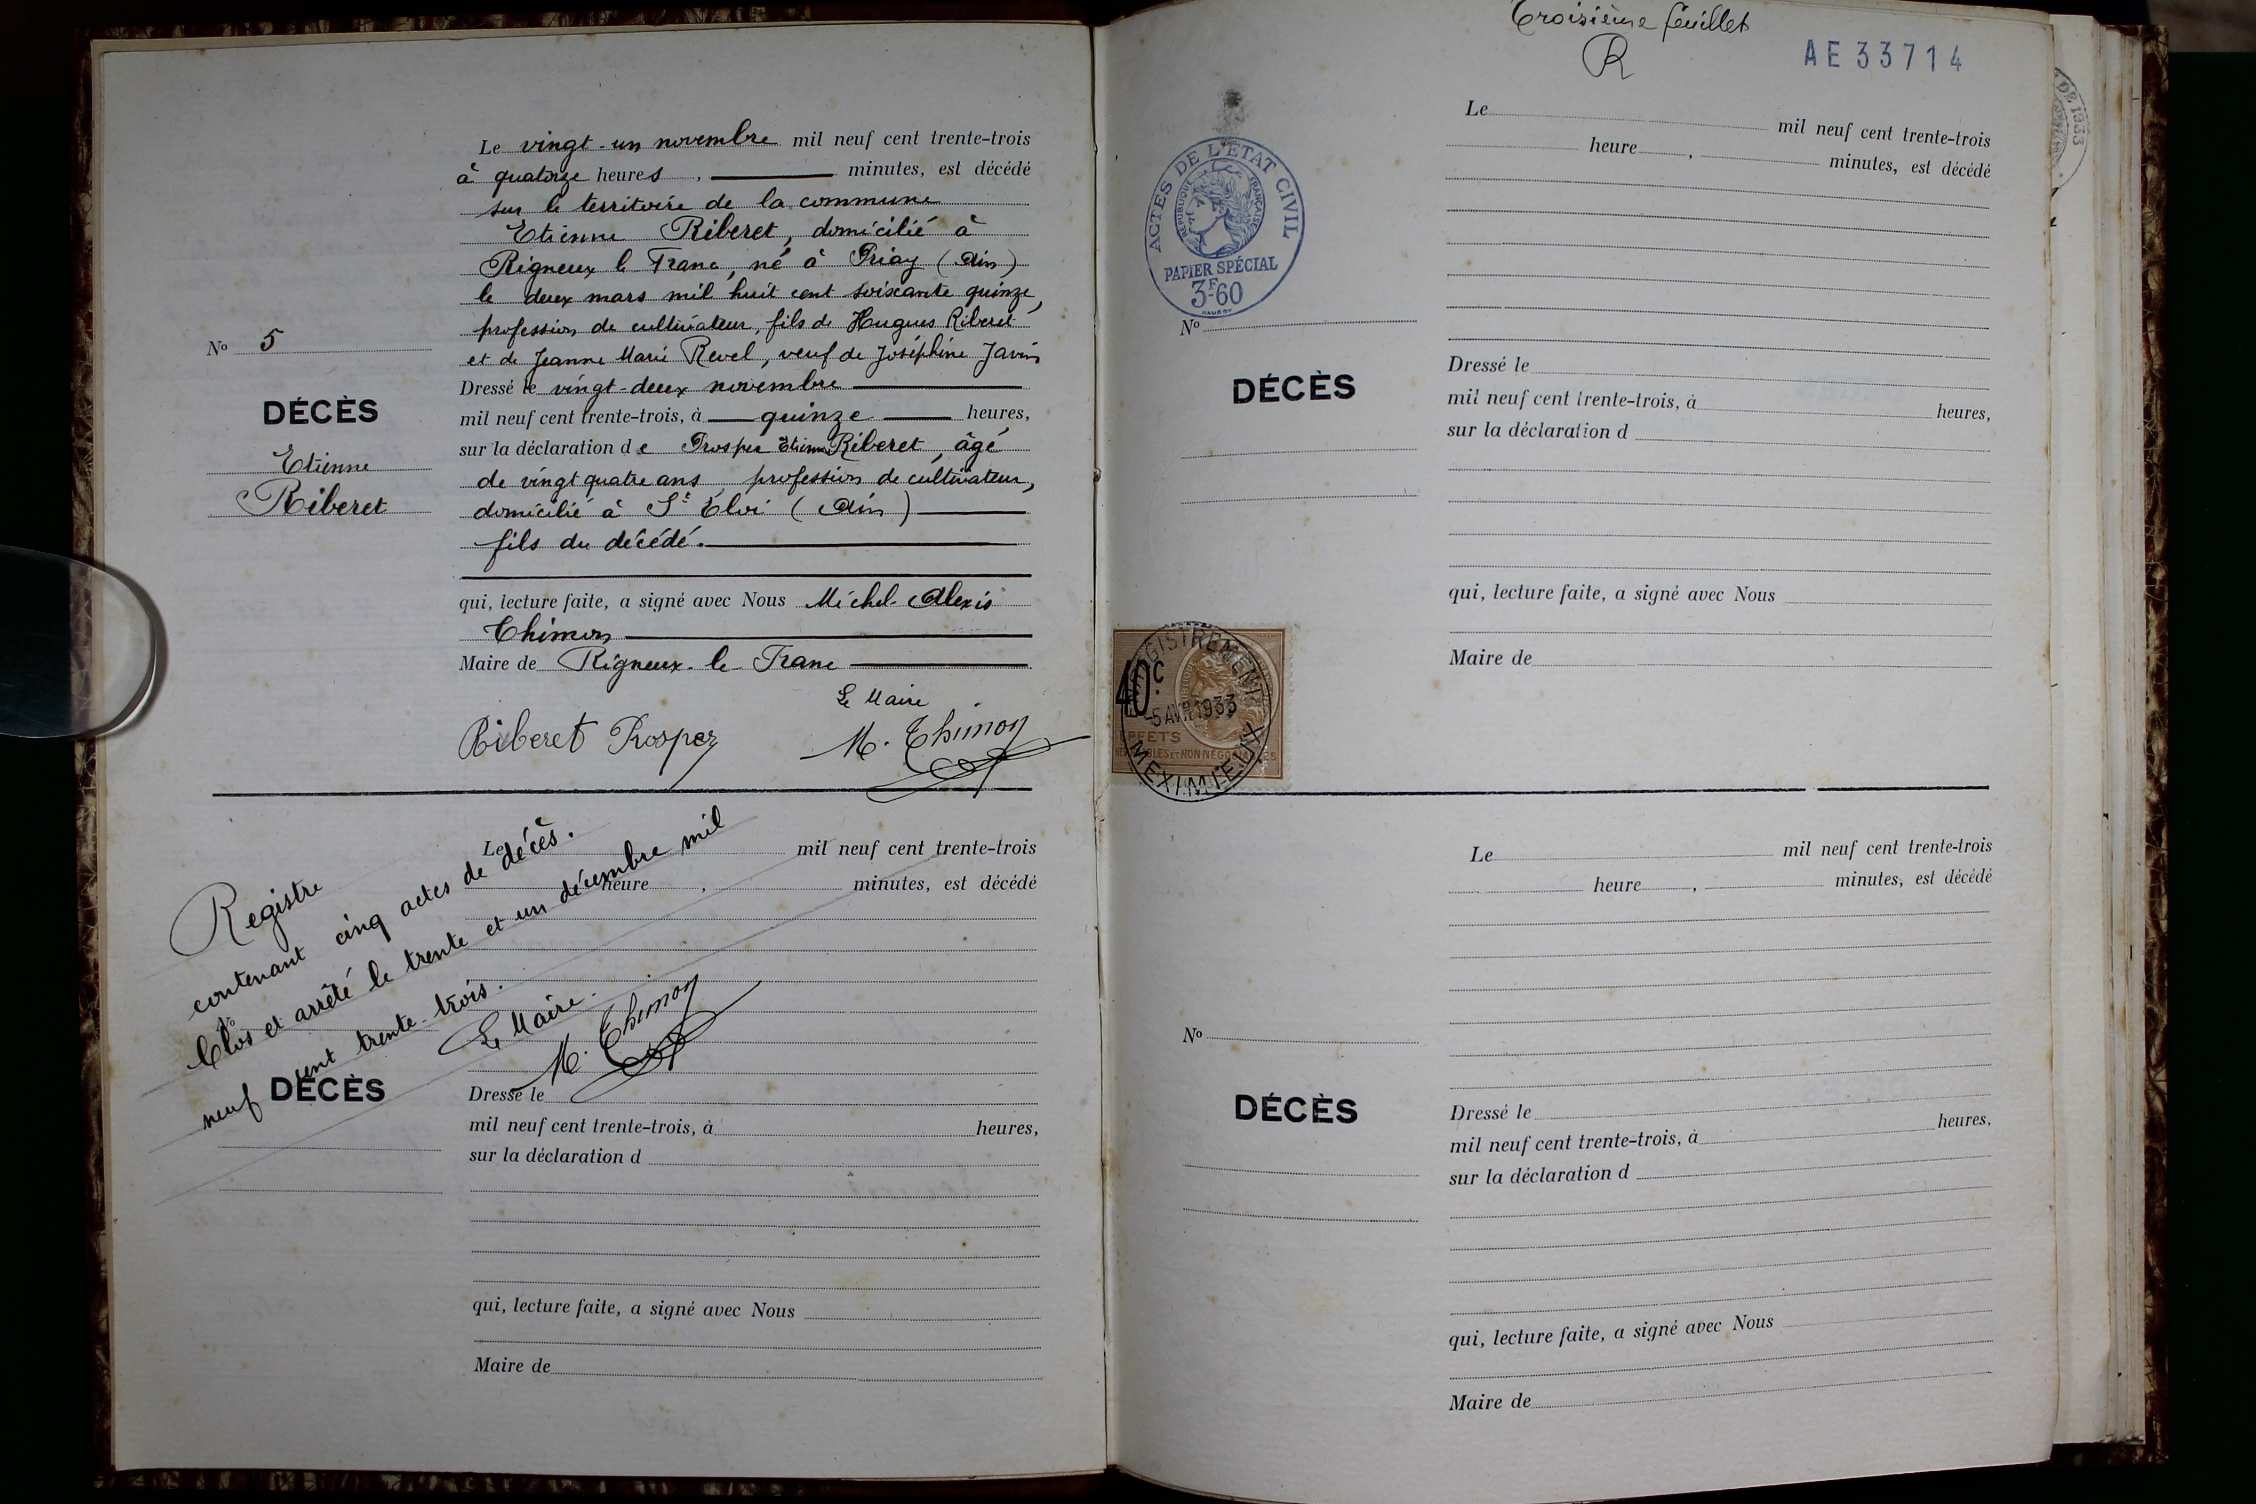 Le vingt-un novembre mil neuf cent trente-trois
à quatorze heures, minutes, est décédé
sur le territoire de la commune
Etienne Riberet, domicilié à
Rigneux le Franc, né à Priay (Ain)
le deux mars mil huit cent soixante quinze,
profession de cultivateur, fils de Hugues Riberet
et de Jeanne Marie Revel, veuf de Joséphine Javin
No 5
DÉCÈS
Etienne
Riberet
Dressé le vingt-deux novembre
mil neuf cent trente-trois, à quinze heures,
sur la déclaration de Prosper Etienne Riberet, âgé
de vingt quatre ans profession de cultivateur,
domicilié à St Éloi (Ain)
fils du décédé.
qui, lecture faite, a signé avec Nous Michel Alexis
Thimon
Maire de Rigneux-le-Franc
Le Maire
Riberet Prosper M. Thimon
Le mil neuf cent trente-trois
heure, minutes, est décédé
Registre
contenant cinq actes de décès.
Clos et arrêté le trente et un décembre mil
neuf cent trente-trois.
Le Maire.
M. Thimon
No
DÉCÈS
Dressé le
mil neuf cent trente-trois, à heures,
sur la déclaration d
qui, lecture faite, a signé avec Nous
Maire de
Troisième feuillet
R
AE33714
ACTES DE L'ÉTAT CIVIL
RÉPUBLIQUE FRANÇAISE
PAPIER SPÉCIAL
3F60
Le mil neuf cent trente-trois
heure, minutes, est décédé
No
DÉCÈS
Dressé le
mil neuf cent trente-trois, à heures,
sur la déclaration d
qui, lecture faite, a signé avec Nous
Maire de
ENREGISTREMENT
40c
5 AVR 1933
MEXIMIEUX
Le mil neuf cent trente-trois
heure, minutes, est décédé
No
DÉCÈS
Dressé le
mil neuf cent trente-trois, à heures,
sur la déclaration d
qui, lecture faite, a signé avec Nous
Maire de
DE 1933